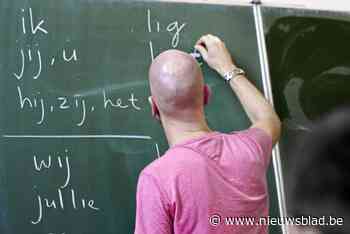 ik lig
jij, u l
hij, zij, het
wij
jullie
www.nieuwsblad.be